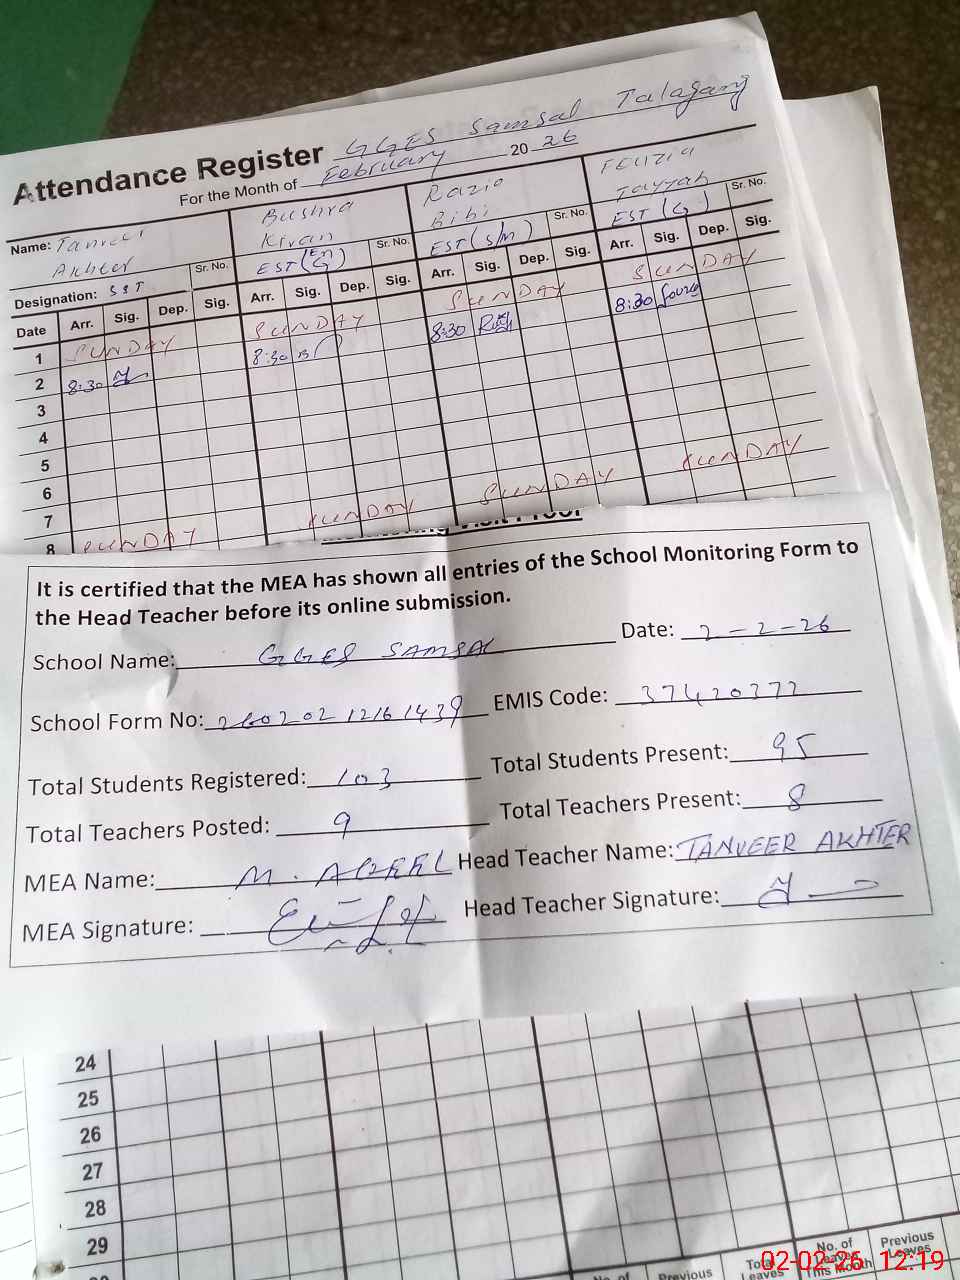 Attendance Register GGES Samsal Talagang
For the Month of February 20 26
Name: Tanveer Akhter
Bushra Kiran
Razia Bibi
Fouzia Tayyab
Designation: SST Sr. No.
EST (En G) Sr. No.
EST (S/M) Sr. No.
EST (G) Sr. No.
Date Arr. Sig. Dep. Sig. Arr. Sig. Dep. Sig. Arr. Sig. Dep. Sig. Arr. Sig. Dep. Sig.
1 SUNDAY SUNDAY SUNDAY SUNDAY
2 8:30 8:30 8:30 8:30
3
4
5
6
7
8 SUNDAY SUNDAY SUNDAY SUNDAY
Visit Proof
It is certified that the MEA has shown all entries of the School Monitoring Form to
the Head Teacher before its online submission.
School Name: GGES SAMSAL Date: 2-2-26
School Form No: 260202 1216 1439 EMIS Code: 37420372
Total Students Registered: 103 Total Students Present: 95
Total Teachers Posted: 9 Total Teachers Present: 8
MEA Name: M. Head Teacher Name: TANVEER AKHTER
MEA Signature: Head Teacher Signature:
24
25
26
27
28
29
No. of Previous Total Leaves No. of Leaves This Month Previous Leaves
02-02-26 12:19